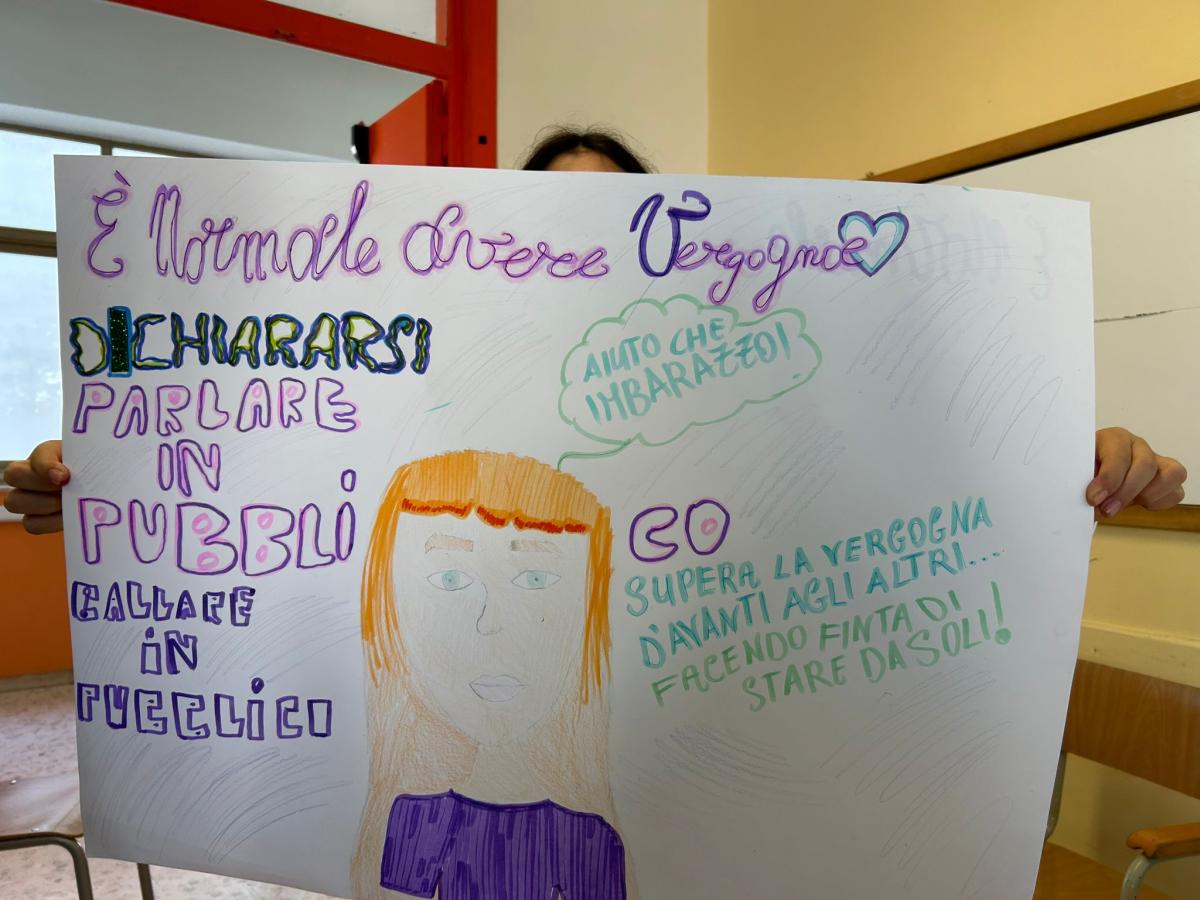 È Normale Avere Vergogna
DICHIARARSI
PARLARE
IN
PUBBLI
CO
BALLARE
IN
PUBBLICO
AIUTO CHE
IMBARAZZO!
SUPERA LA VERGOGNA
D'AVANTI AGLI ALTRI...
FACENDO FINTA DI
STARE DA SOLI!